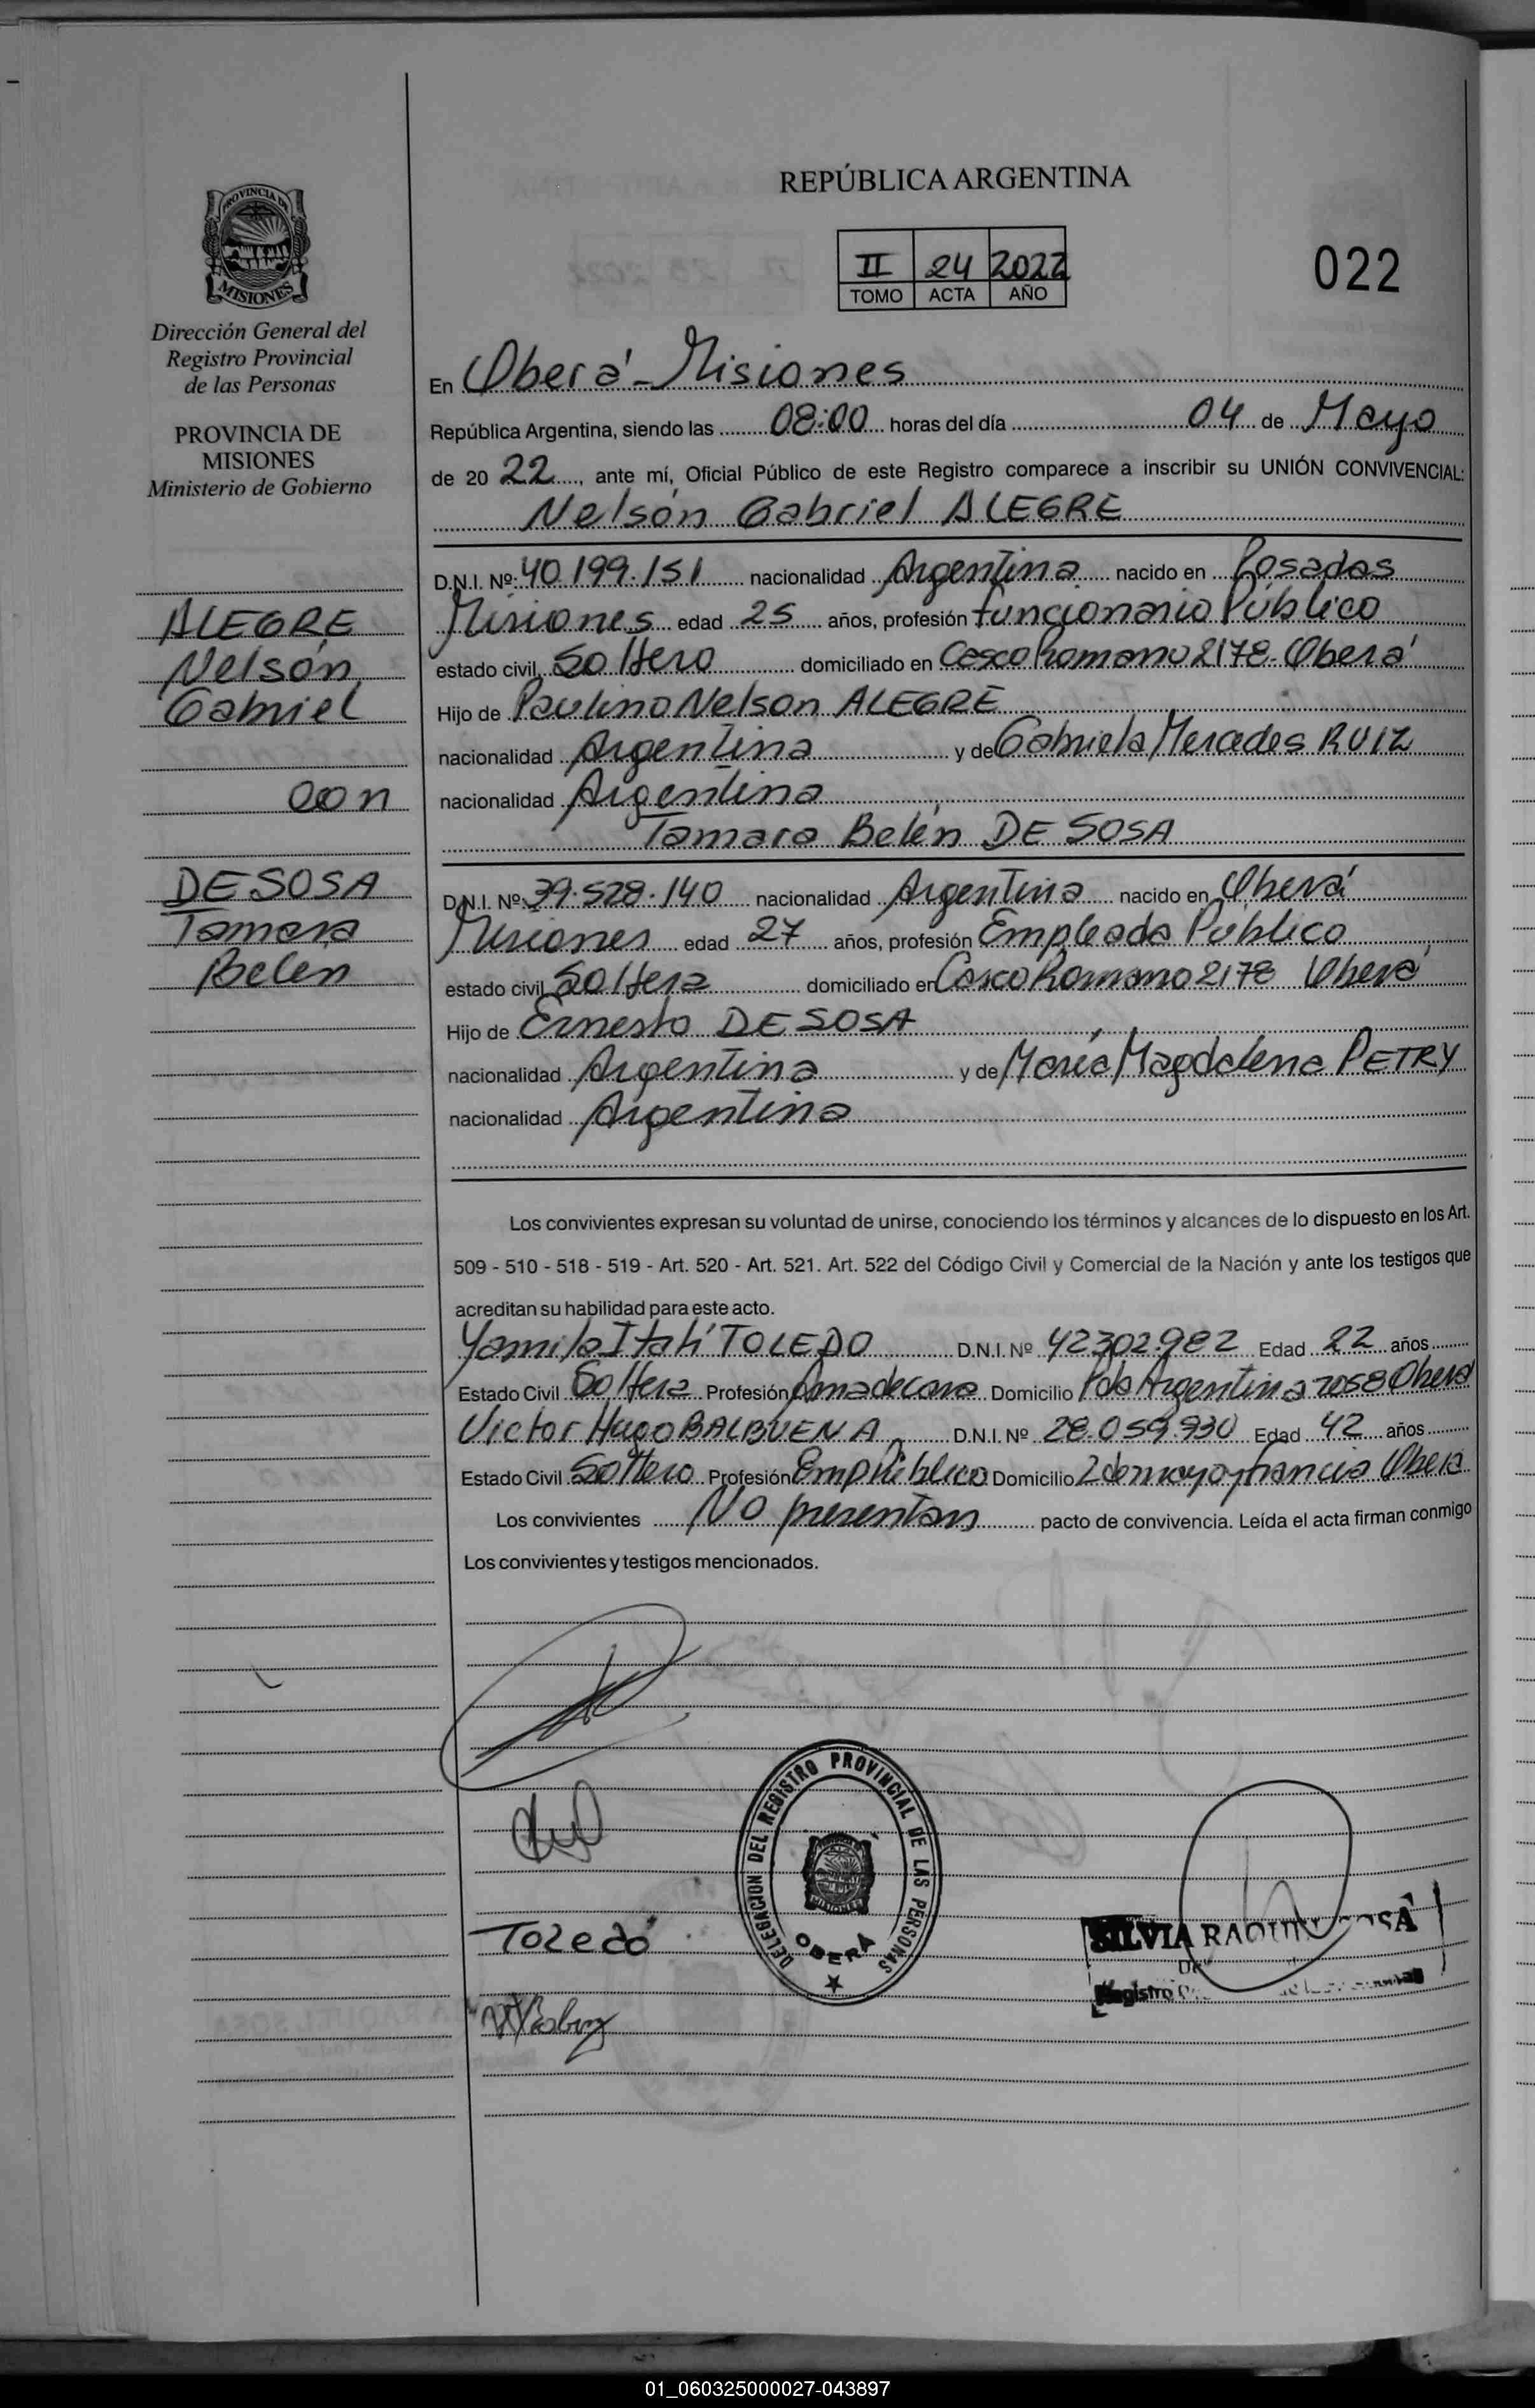 REPÚBLICA ARGENTINA
II 24 2022
TOMO ACTA AÑO
022
PROVINCIA DE
MISIONES
Dirección General del
Registro Provincial
de las Personas
PROVINCIA DE
MISIONES
Ministerio de Gobierno
ALEGRE
Nelsón
Gabriel
con
DE SOSA
Tamara
Belen
En Oberá - Misiones
República Argentina, siendo las 08:00 horas del día 04 de Mayo
de 20 22, ante mí, Oficial Público de este Registro comparece a inscribir su UNIÓN CONVIVENCIAL:
Nelsón Gabriel ALEGRE
D.N.I. Nº: 40.199.151 nacionalidad Argentina nacido en Posadas
Misiones edad 25 años, profesión funcionario Público
estado civil Soltero domiciliado en Casco Romano 2178 - Oberá
Hijo de Paulino Nelson ALEGRE
nacionalidad Argentina y de Gabriela Mercedes RUIZ
nacionalidad Argentina
Tamara Belén DE SOSA
D.N.I. Nº: 39.528.140 nacionalidad Argentina nacido en Oberá
Misiones edad 27 años, profesión Empleada Público
estado civil Soltera domiciliado en Casco Romano 2178 Oberá
Hijo de Ernesto DE SOSA
nacionalidad Argentina y de María Magdalena PETRY
nacionalidad Argentina
Los convivientes expresan su voluntad de unirse, conociendo los términos y alcances de lo dispuesto en los Art.
509 - 510 - 518 - 519 - Art. 520 - Art. 521. Art. 522 del Código Civil y Comercial de la Nación y ante los testigos que
acreditan su habilidad para este acto.
Yamila Itatí TOLEDO D.N.I. Nº 42302.982 Edad 22 años
Estado Civil Soltera Profesión Ama de casa Domicilio Pdo Argentina 7058 Oberá
Victor Hugo BALBUENA D.N.I. Nº 28.059.930 Edad 42 años
Estado Civil Soltero Profesión Emp Público Domicilio 2 de mayo y francia Oberá
Los convivientes No presentan pacto de convivencia. Leída el acta firman conmigo
Los convivientes y testigos mencionados.
DELEGACION DEL REGISTRO PROVINCIAL DE LAS PERSONAS
OBERA
Toledo
SILVIA RAQUEL SOSA
Registro
01_060325000027-043897